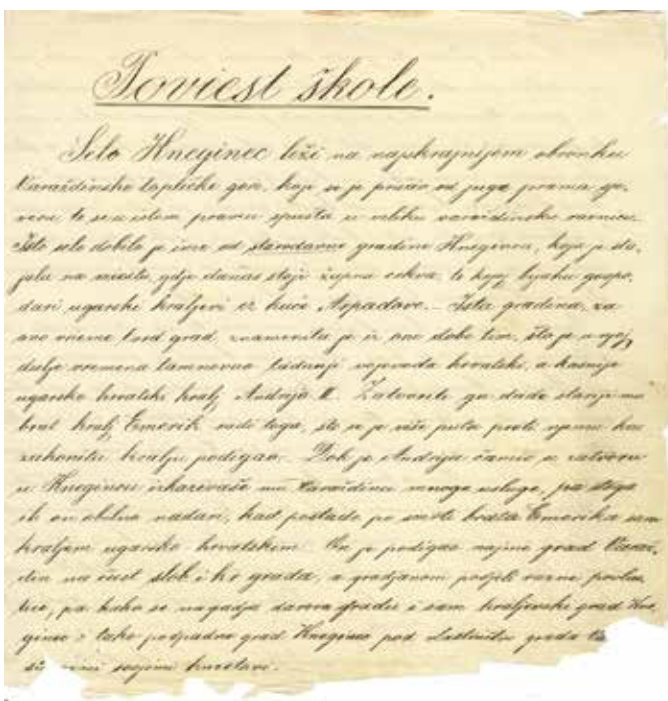 Poviest škole.
Selo Kneginec leži na najskrajnijem obronku
Varaždinsko topličke gore, koja se je pružio od juga prama sje-
veru te se u istom pravcu spušta u veliku varaždinsku ravnicu.
Isto selo dobilo je ime od starodavne gradine Kneginca, koja je sta-
jala na mjestu, gdje danas stoji župna crkva, te kojoj bijahu gospo-
dari ugarski kraljevi iz kuće Arpadove. – Ista gradina, za
ono vrieme tvrd grad, znamenita je iz one dobe tim, što je u njoj
dulje vremena tamnovao tadanji vojvoda hrvatski, a kasnije
ugarsko hrvatski kralj Andrija II. Zatvoriti ga dade stariji mu
brat kralj Emerik radi toga, što se je više puta proti njemu kao
zakonitu kralju podigao. Dok je Andrija čamio u zatvoru
u Knegincu iskazivaše mu Varaždinci mnoge usluge, pa stoga
ih on obilno nadari, kad postade po smrti brata Emerika sam
kraljem ugarsko hrvatskim. On je podigao naime grad Varaž-
din na čast slob. i kr. grada, a gradjanom podjeli razne povlas-
tice, pa kako se nagadja darova gradu i sam kraljevski grad Kne-
ginec i tako podpadne grad Kneginec pod vlastništvo grada
svojimi